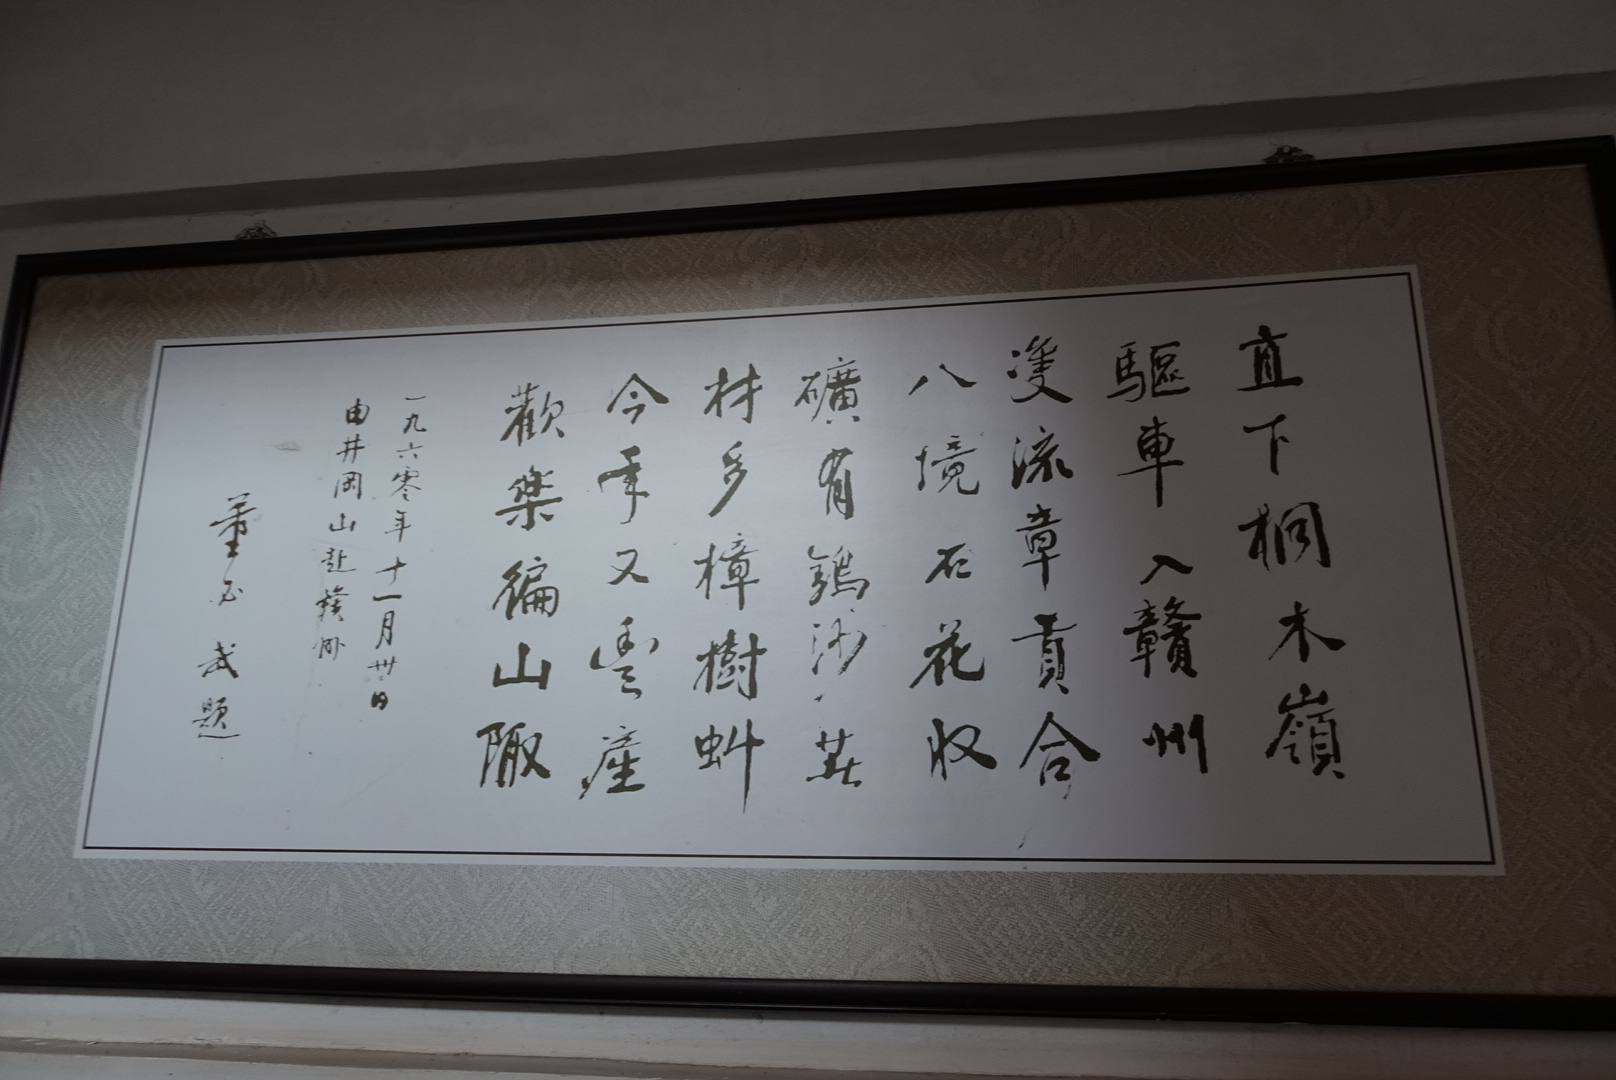 直下桐木嶺
驅車入贛州
雙流章貢合
八境石花收
礦有鎢沙誌
材多樟樹虯
今年又豐產
歡樂徧山陬
一九六零年十一月卅日
由井岡山赴贛州
董必武題